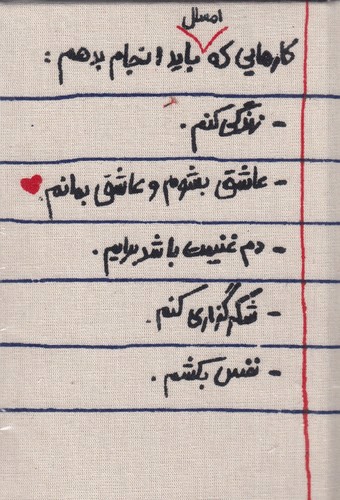 کارهایی که امسال باید انجام بدهم :
- زندگی کنم .
- عاشق بشوم و عاشق بمانم .
- دم غنیمت باشد برایم .
- شکرگزاری کنم .
- نفس بکشم .